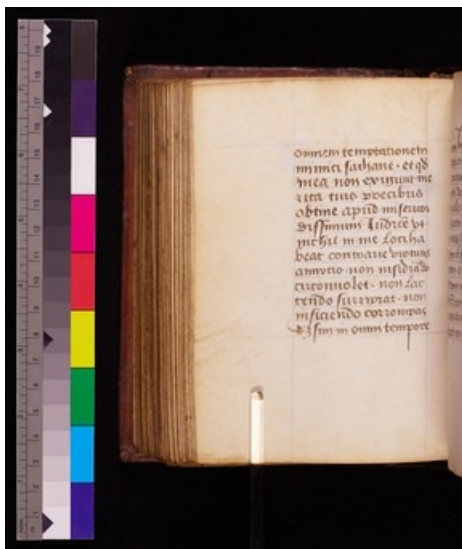 omnem temptationem
inimici sathane · et qd
mea non exigunt me
rita tuis precibus
obtine apud misericor
dissimum Iudicē vt
nichil in me loci ha
beat contrarie virtutis
amixtio · non insidiādo
circumuolet · non lac
tendo surripiat · non
inficiendo corrompat
Et sim in omni tempore